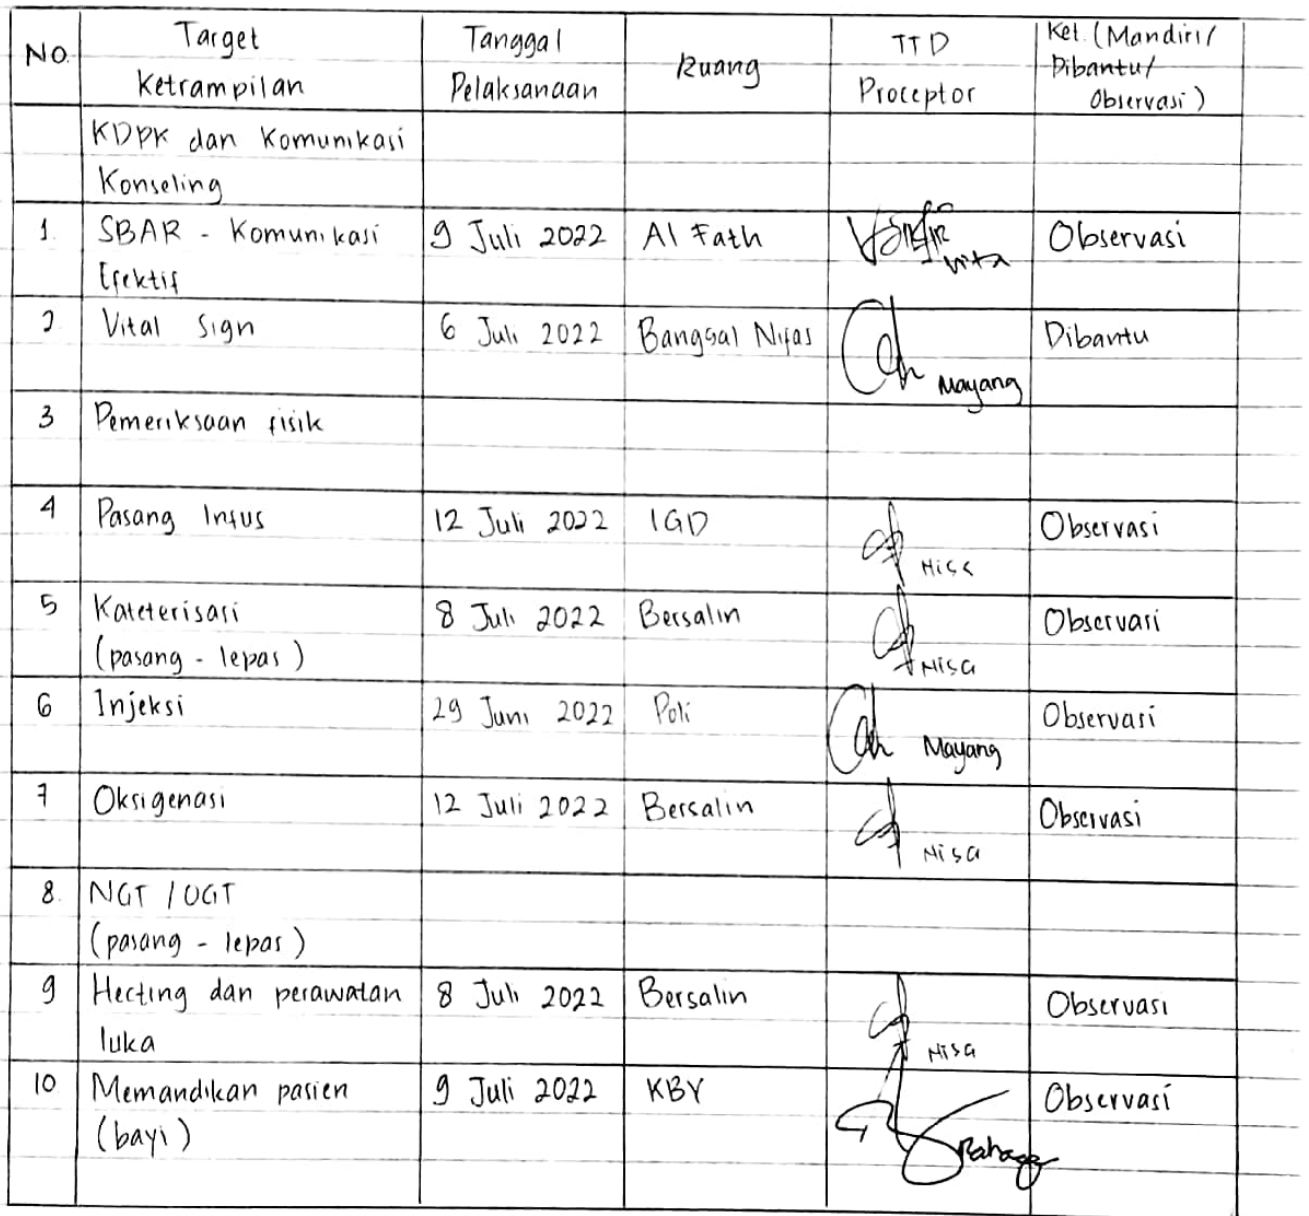 No. Target Ketrampilan Tanggal Pelaksanaan Ruang TTD Proceptor Ket. (Mandiri/ Dibantu/ Observasi)
KDPK dan Komunikasi
Konseling
1. SBAR - Komunikasi 9 Juli 2022 Al Fath Vita Observasi
Efektif
2. Vital Sign 6 Juli 2022 Bangsal Nifas Mayang Dibantu
3 Pemeriksaan fisik
4 Pasang Infus 12 Juli 2022 IGD Nisa Observasi
5 Kateterisasi 8 Juli 2022 Bersalin Nisa Observasi
(pasang - lepas)
6 Injeksi 29 Juni 2022 Poli Mayang Observasi
7 Oksigenasi 12 Juli 2022 Bersalin Nisa Observasi
8. NGT / OGT
(pasang - lepas)
9 Hecting dan perawatan 8 Juli 2022 Bersalin Nisa Observasi
luka
10 Memandikan pasien 9 Juli 2022 KBY Observasi
(bayi)